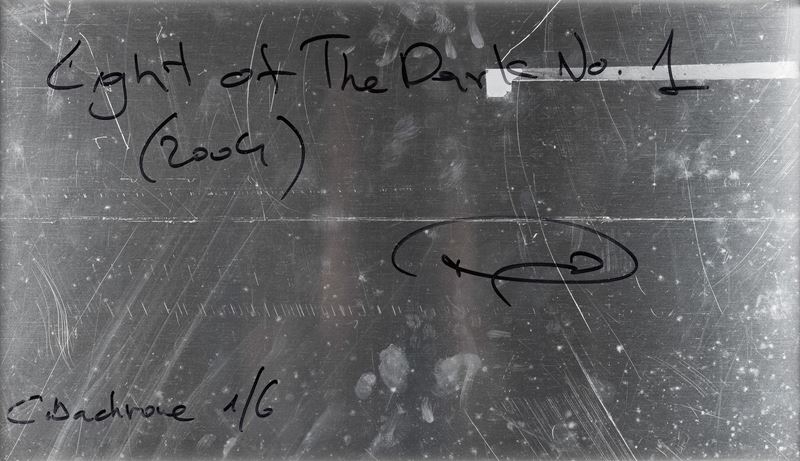 Light of The Dark No. 1
(2004)
Cibachrome 1/6